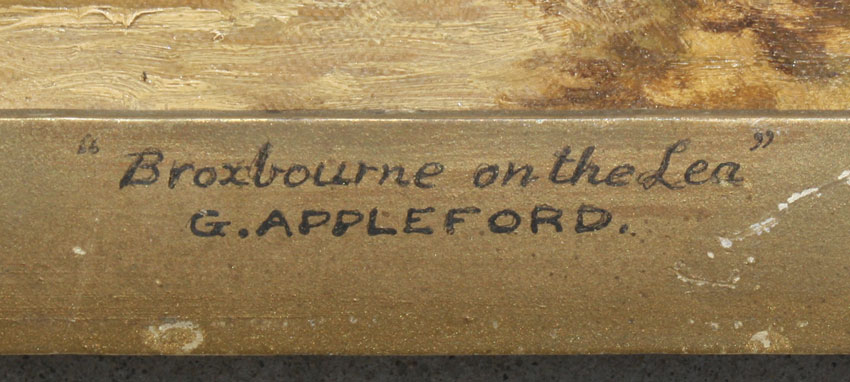 "Broxbourne on the Lea"
G. APPLEFORD.